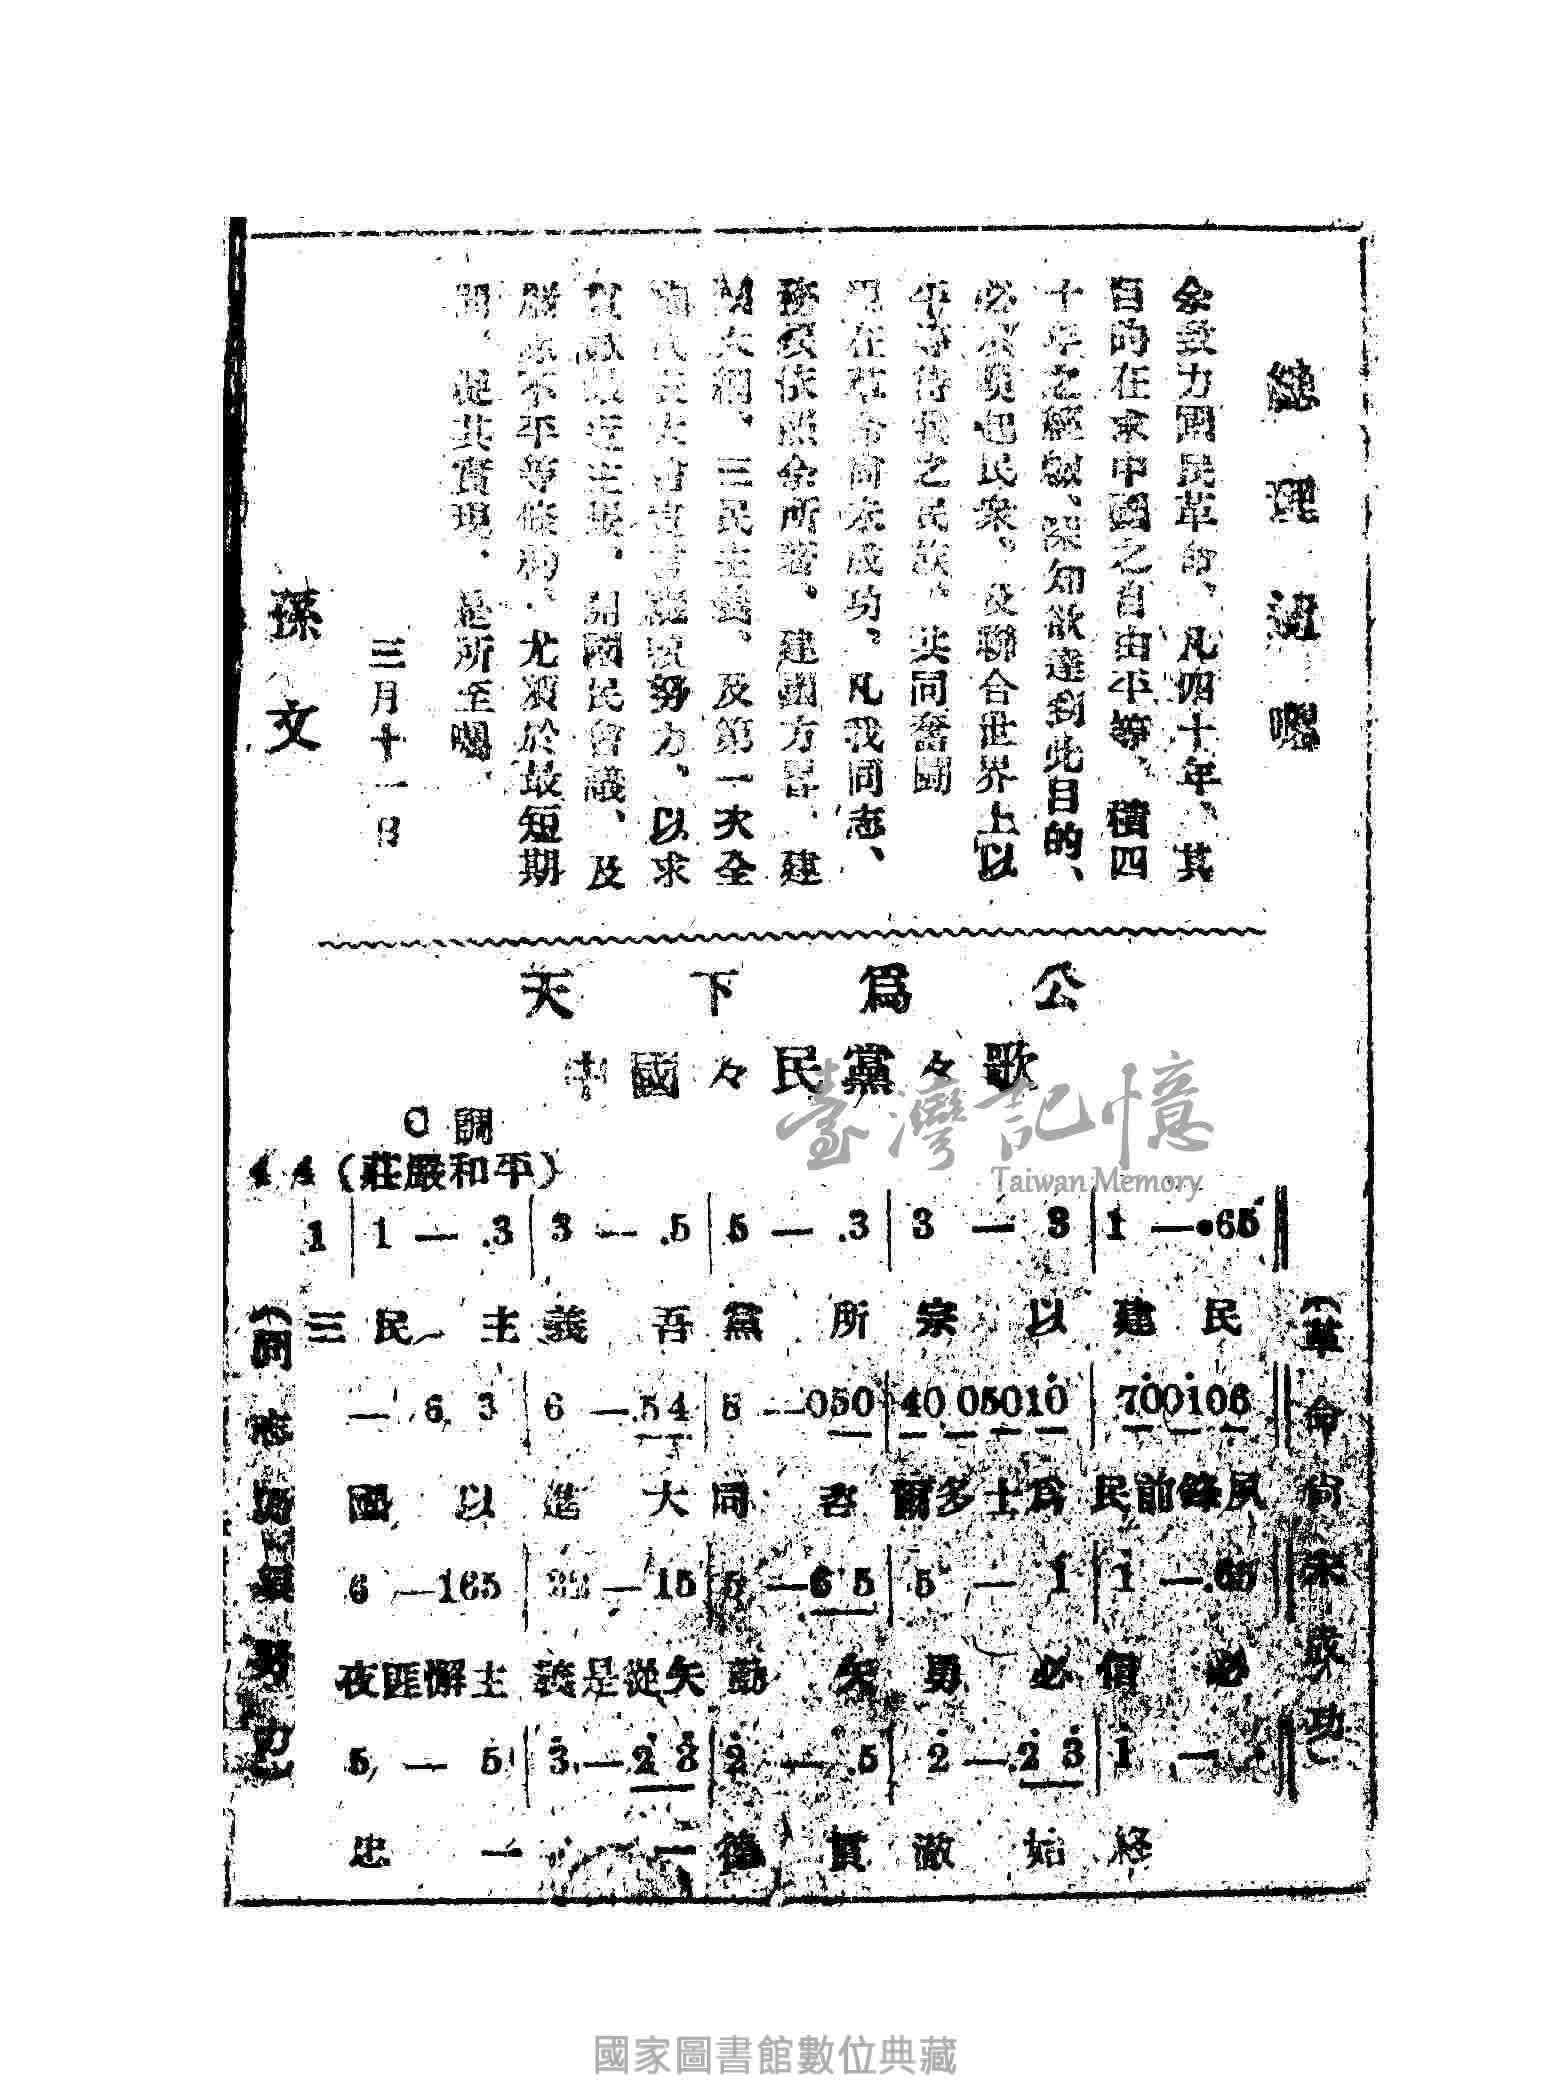 總理遺囑
余致力國民革命、凡四十年、其
目的在求中國之自由平等、積四
十年之經驗、深知欲達到此目的、
必須喚起民衆、及聯合世界上以
平等待我之民族、共同奮鬬
現在革命尚未成功、凡我同志、
務須依照余所著、建國方畧、建
國大綱、三民主義、及第一次全
國代表大會宣言繼續努力、以求
貫澈最近主張、開國民會議、及
廢除不平等條約、尤須於最短期
間、促其實現、是所至囑、
三月十一日
孫文
天下爲公
中國々民黨々歌
C調
4 4（莊嚴和平）
1 | 1 — .3 | 3 — .5 | 5 — .3 | 3 — 3 | 1 — •65 ‖
三民主義吾黨所宗以建民
— 6 3 | 6 — .54 | 5 — 050 | 40 05010 | 700106 ‖
國以進大同咨爾多士爲民前鋒夙
6 — 165 | 32 — 15 | 5 — 6 5 | 5 — 1 | 1 — .65 ‖
夜匪懈主義是從矢勤矢勇必信必
5 — 5 | 3 — 2 3 | 2 — .5 | 2 — .2 3 | 1 — ‖
忠一一德貫澈始終
（革命尚未成功）
（同志仍須努力）
臺灣記憶
Taiwan Memory
國家圖書館數位典藏